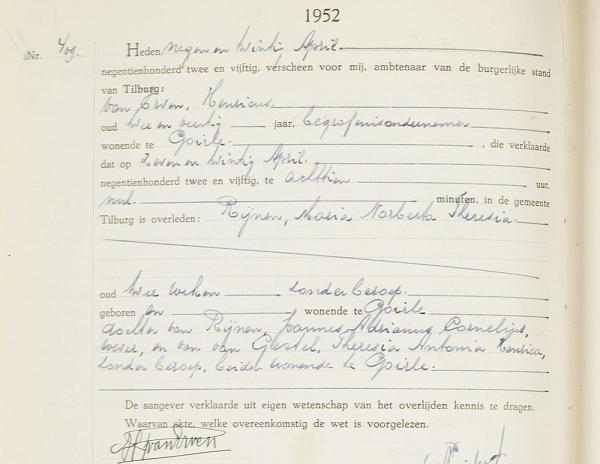 1952
Nr. 409. Heden, negen en twintig April.
negentienhonderd twee en vijftig, verscheen voor mij, ambtenaar van de burgerlijke stand
van Tilburg:
van Erven, Henricus.
oud twee en veertig jaar, begrafenisondernemer
wonende te Goirle. , die verklaarde
dat op zeven en twintig April.
negentienhonderd twee en vijftig, te achttien uur,
nul. minuten, in de gemeente
Tilburg is overleden: Rijnen, Maria Norberta Theresia.
oud twee weken zonder beroep.
geboren en wonende te Goirle
dochter van Rijnen, Joannes Adrianus Cornelijs,
wever, en van van Gestel, Theresia Antonia Henrica,
zonder beroep, beiden wonende te Goirle.
De aangever verklaarde uit eigen wetenschap van het overlijden kennis te dragen.
Waarvan akte, welke overeenkomstig de wet is voorgelezen.
vanErven